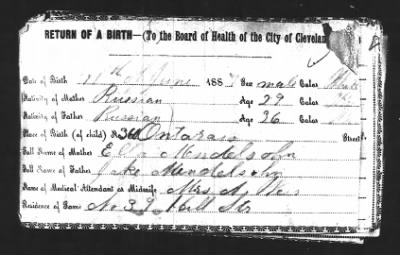 RETURN OF A BIRTH—(To the Board of Health of the City of Cleveland
Date of Birth 11th June 188 Sex male Color White
Nativity of Mother Russian Age 29 Color
Nativity of Father Russian Age 26 Color
Place of Birth (of child) No. 360 Ontario Street
Full Name of Mother Ella Mendelsohn
Full Name of Father Jake Mendelsohn
Name of Medical Attendant or Midwife Mrs.
Residence of Same No 39 Hill Str